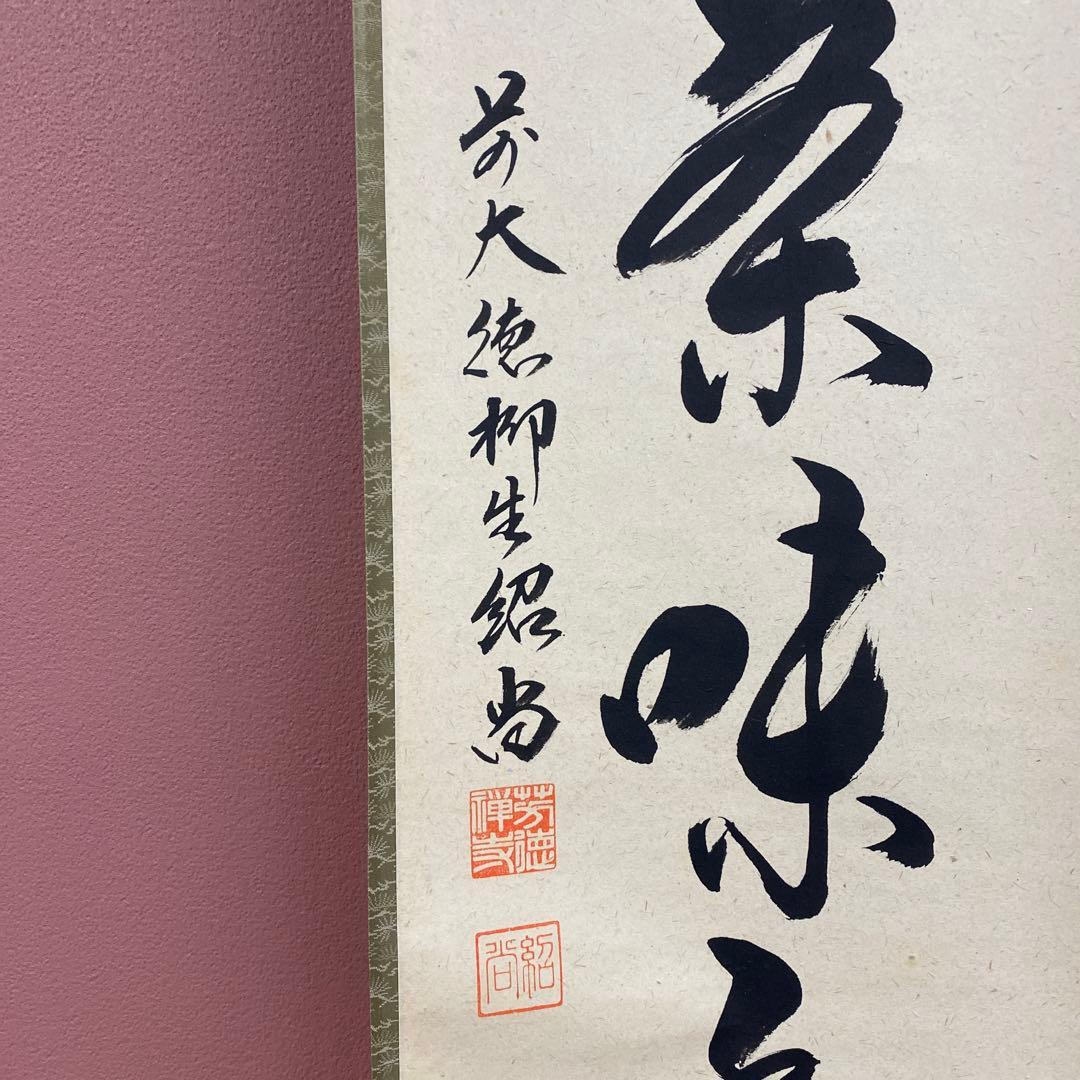 茶味
前大徳柳生紹尚
芳徳禅寺
紹尚